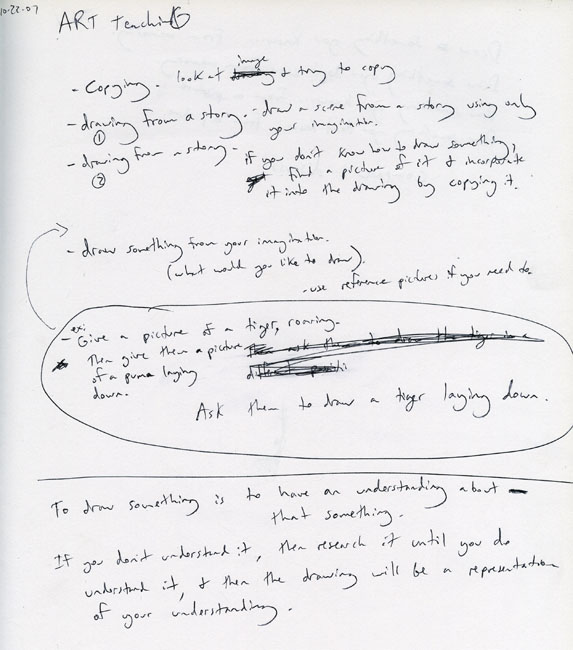 10-22-07
ART teachinG
- Copying. look at image & try to copy
- drawing from a story. - draw a scene from a story using only
① your imagination.
- drawing from a story - if you don't know how to draw something,
② find a picture of it & incorporate
it into the drawing by copying it.
- draw something from your imagination.
(what would you like to draw).
- use reference pictures if you need to
ex:
- Give a picture of a tiger, roaring.
Then give them a picture
of a puma laying
down.
Ask them to draw a tiger laying down.
To draw something is to have an understanding about
that something.
If you don't understand it, then research it until you do
understand it, & then the drawing will be a representation
of your understanding.